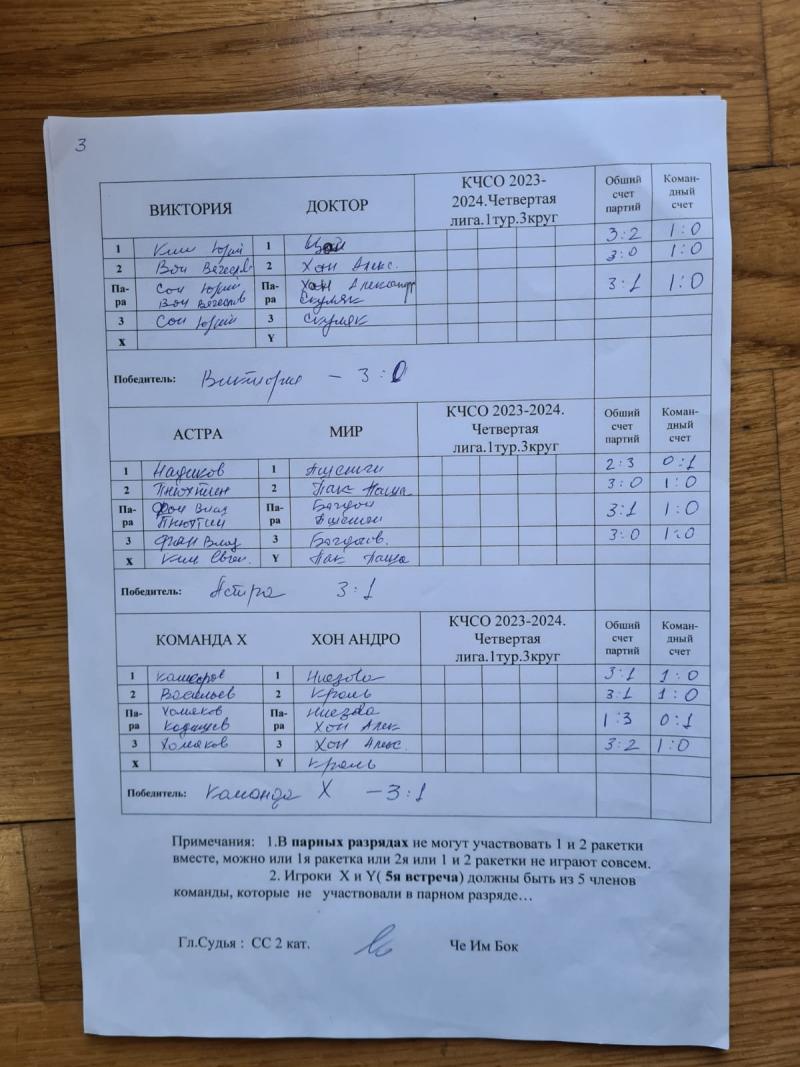 3
ВИКТОРИЯ ДОКТОР КЧСО 2023-
2024.Четвертая
лига.1тур.3круг Общий
счет
партий Коман-
дный
счет
1 Ким Юрий 1 Цой 3:2 1:0
2 Вон Вячеслв 2 Хон Алекс. 3:0 1:0
Па-
ра Сон Юрий
Вон Вячеслв Па-
ра Хон Александр
Скумяк 3:1 1:0
3 Сон Юрий 3 Скумяк
X Y
Победитель: Виктория – 3:0
АСТРА МИР КЧСО 2023-2024.
Четвертая
лига.1тур.3круг Общий
счет
партий Коман-
дный
счет
1 1 2:3 0:1
2 2 Пак Паша 3:0 1:0
Па-
ра Влад Па-
ра 3:1 1:0
3 Влад 3 3:0 1:0
X Ким Евген. Y Пак Паша
Победитель: Астра 3:1
КОМАНДА Х ХОН АНДРО КЧСО 2023-2024.
Четвертая
лига.1тур.3круг Общий
счет
партий Коман-
дный
счет
1 1 3:1 1:0
2 Васильев 2 Кроль 3:1 1:0
Па-
ра Хомяков Па-
ра Хон Алек 1:3 0:1
3 Хомяков 3 Хон Алекс. 3:2 1:0
X Y Кроль
Победитель: Команда Х – 3:1
Примечания: 1.В парных разрядах не могут участвовать 1 и 2 ракетки
вместе, можно или 1я ракетка или 2я или 1 и 2 ракетки не играют совсем.
2. Игроки X и Y( 5я встреча) должны быть из 5 членов
команды, которые не участвовали в парном разряде…
Гл.Судья : СС 2 кат. Че Им Бок